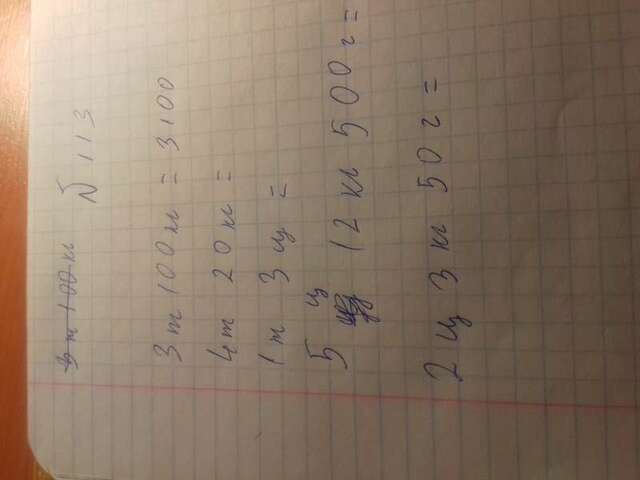 № 113
3 т 100 кг
3 т 100 кг = 3100
4 т 20 кг =
1 т 3 ц =
5 ц 12 кг 500 г =
2 ц 3 кг 50 г =